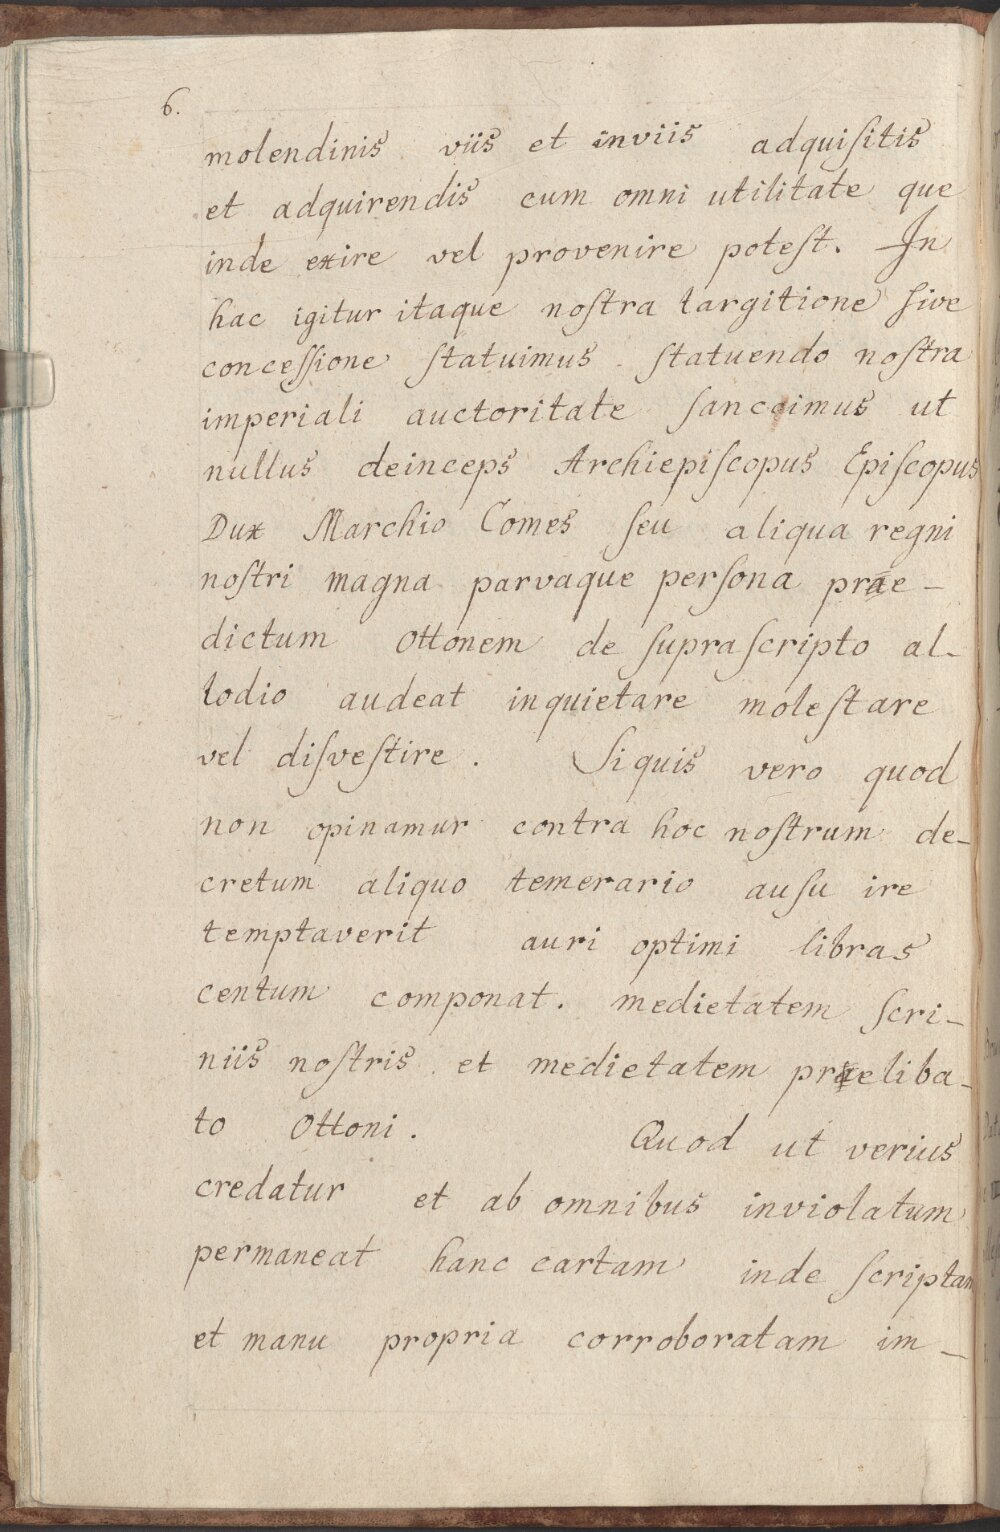 6.
molendinis viis et inviis adquiſitis
et adquirendis cum omni utilitate que
inde exire vel provenire poteſt. In
hac igitur itaque noſtra largitione ſive
conceſſione ſtatuimus ſtatuendo noſtra
imperiali auctoritate ſanccimus ut
nullus deinceps Archiepiſcopus Epiſcopus
Dux Marchio Comes ſeu aliqua regni
noſtri magna parvaque perſona prae-
dictum Ottonem de ſupraſcripto al-
lodio audeat inquietare moleſtare
vel diſveſtire. Siquis vero quod
non opinamur contra hoc noſtrum de-
cretum aliquo temerario auſu ire
temptaverit auri optimi libras
centum componat. medietatem ſcri-
niis noſtris et medietatem praeliba-
to Ottoni. Quod ut verius
credatur et ab omnibus inviolatum
permaneat hanc cartam inde ſcriptam
et manu propria corroboratam im-